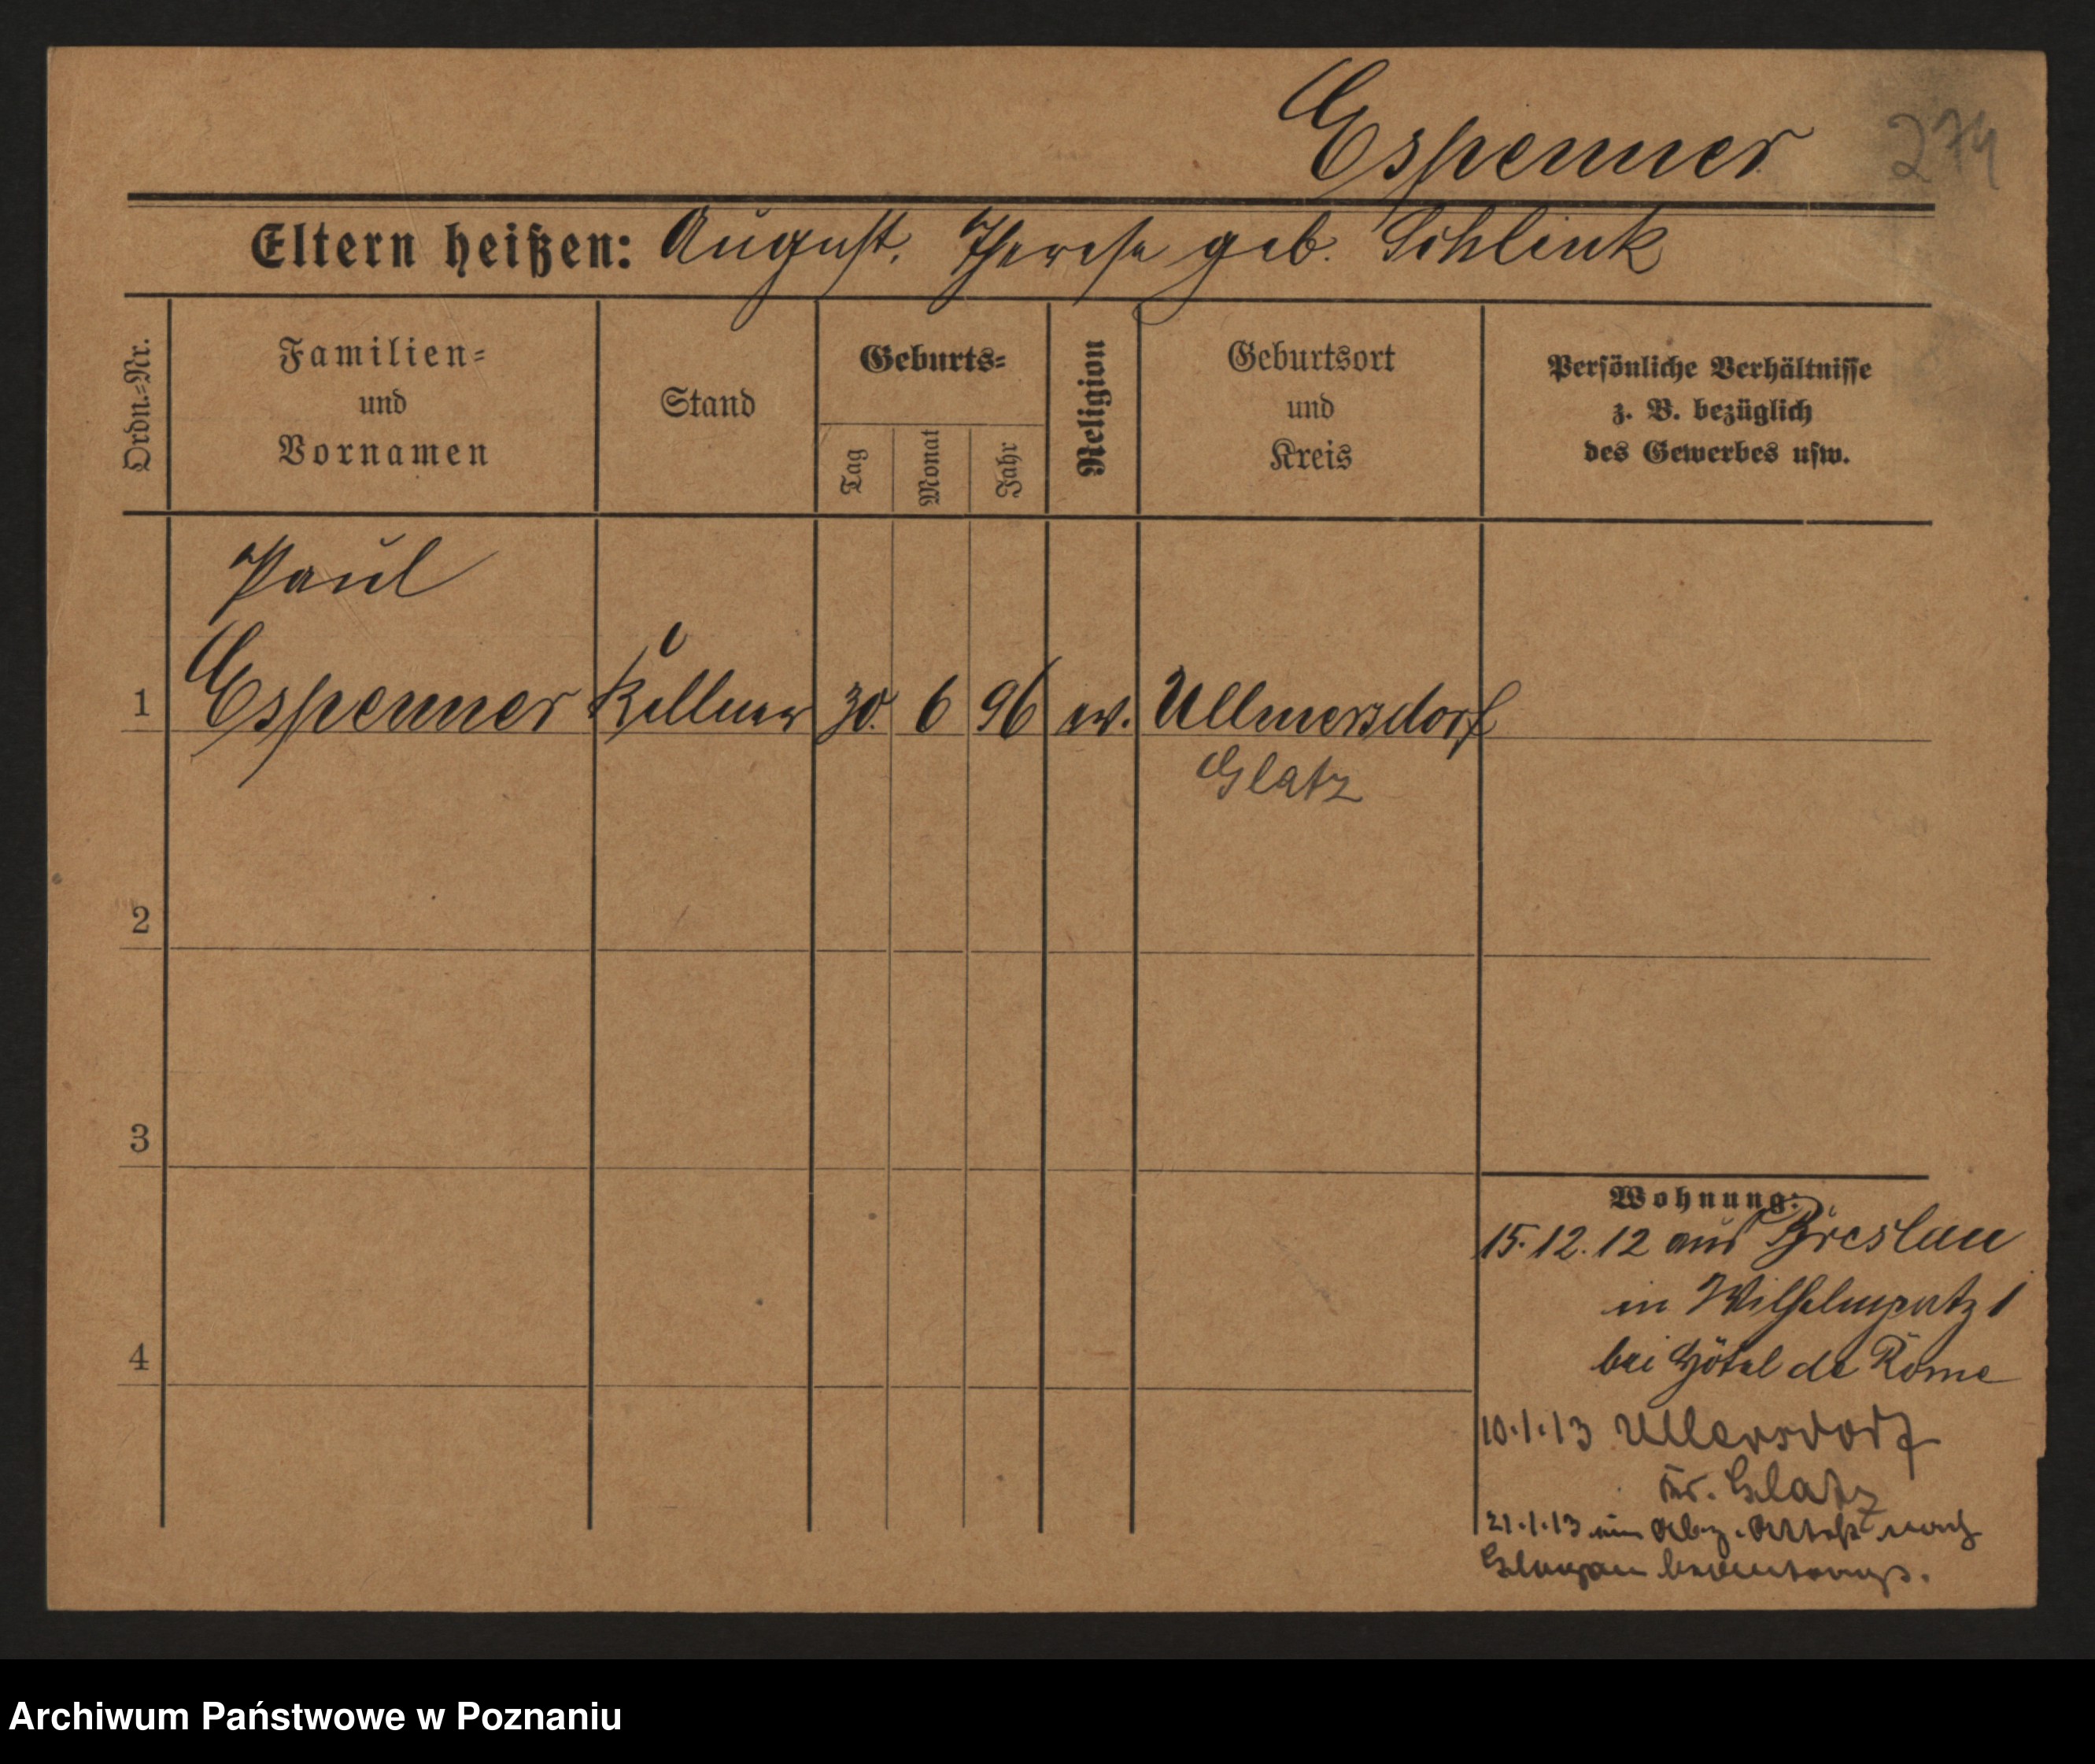 Espenner 274
Eltern heißen: August, Therese geb. Schlink
Ordn.-Nr.
Familien-
und
Vornamen
Stand
Geburts-
Tag
Monat
Jahr
Religion
Geburtsort
und
Kreis
Persönliche Verhältnisse
z. B. bezüglich
des Gewerbes usw.
Paul
1 Espenner Kellner 30. 6 96 ev. Ullmersdorf
Glatz
2
3
4
Wohnung:
15.12.12 aus Breslau
in Wilhelmpatz 1
bei Hôtel de Rome
10.1.13 Ullersdorf
Kr. Glatz
21.1.13 um Abz. Attest nach
Glogau
Archiwum Państwowe w Poznaniu